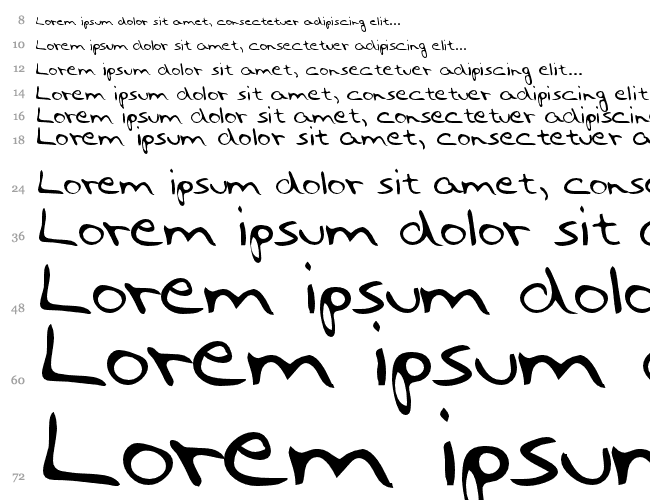 8 Lorem ipsum dolor sit amet, consectetuer adipiscing elit...
10 Lorem ipsum dolor sit amet, consectetuer adipiscing elit...
12 Lorem ipsum dolor sit amet, consectetuer adipiscing elit...
14 Lorem ipsum dolor sit amet, consectetuer adipiscing elit
16 Lorem ipsum dolor sit amet, consectetuer adipiscin
18 Lorem ipsum dolor sit amet, consectetuer a
24 Lorem ipsum dolor sit amet, cons
36 Lorem ipsum dolor sit
48 Lorem ipsum dolo
60 Lorem ipsum
72 Lorem ipsum